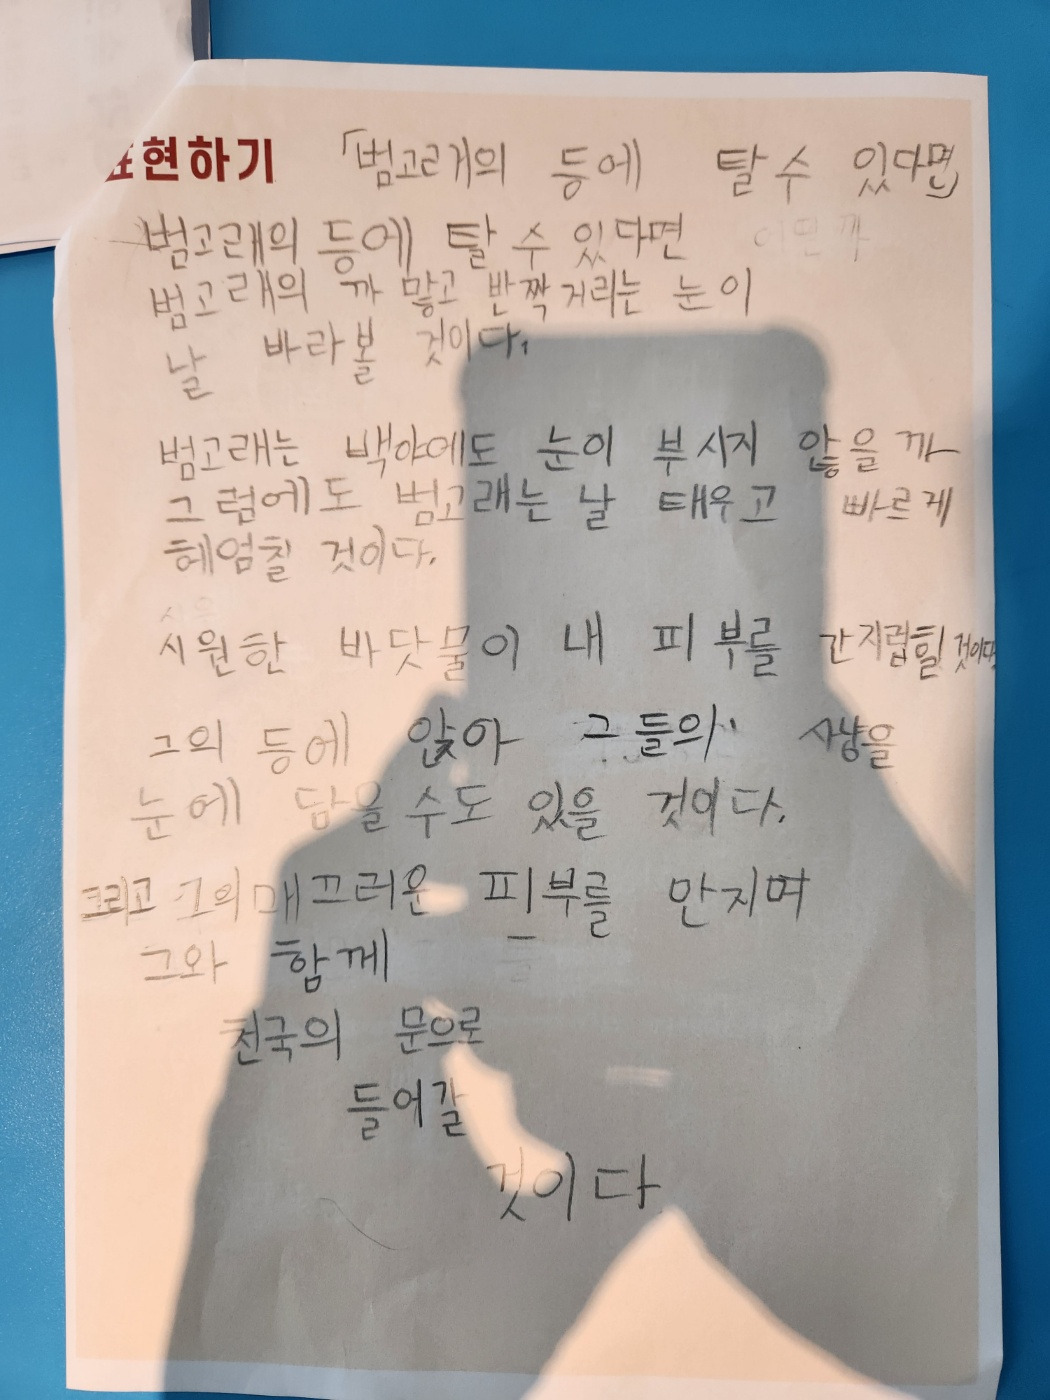 표현하기 「범고래의 등에 탈 수 있다면」
범고래의 등에 탈 수 있다면
범고래의 까 맣고 반짝거리는 눈이
날 바라볼 것이다.
범고래는 백야에도 눈이 부시지 않을까
그럼에도 범고래는 날 태우고 빠르게
헤엄칠 것이다.
시원한 바닷물이 내 피부를 간지럽힐 것이다
그의 등에 앉아 그들의 사냥을
눈에 담을 수도 있을 것이다.
그리고 그의 매끄러운 피부를 만지며
그와 함께
천국의 문으로
들어갈
것이다